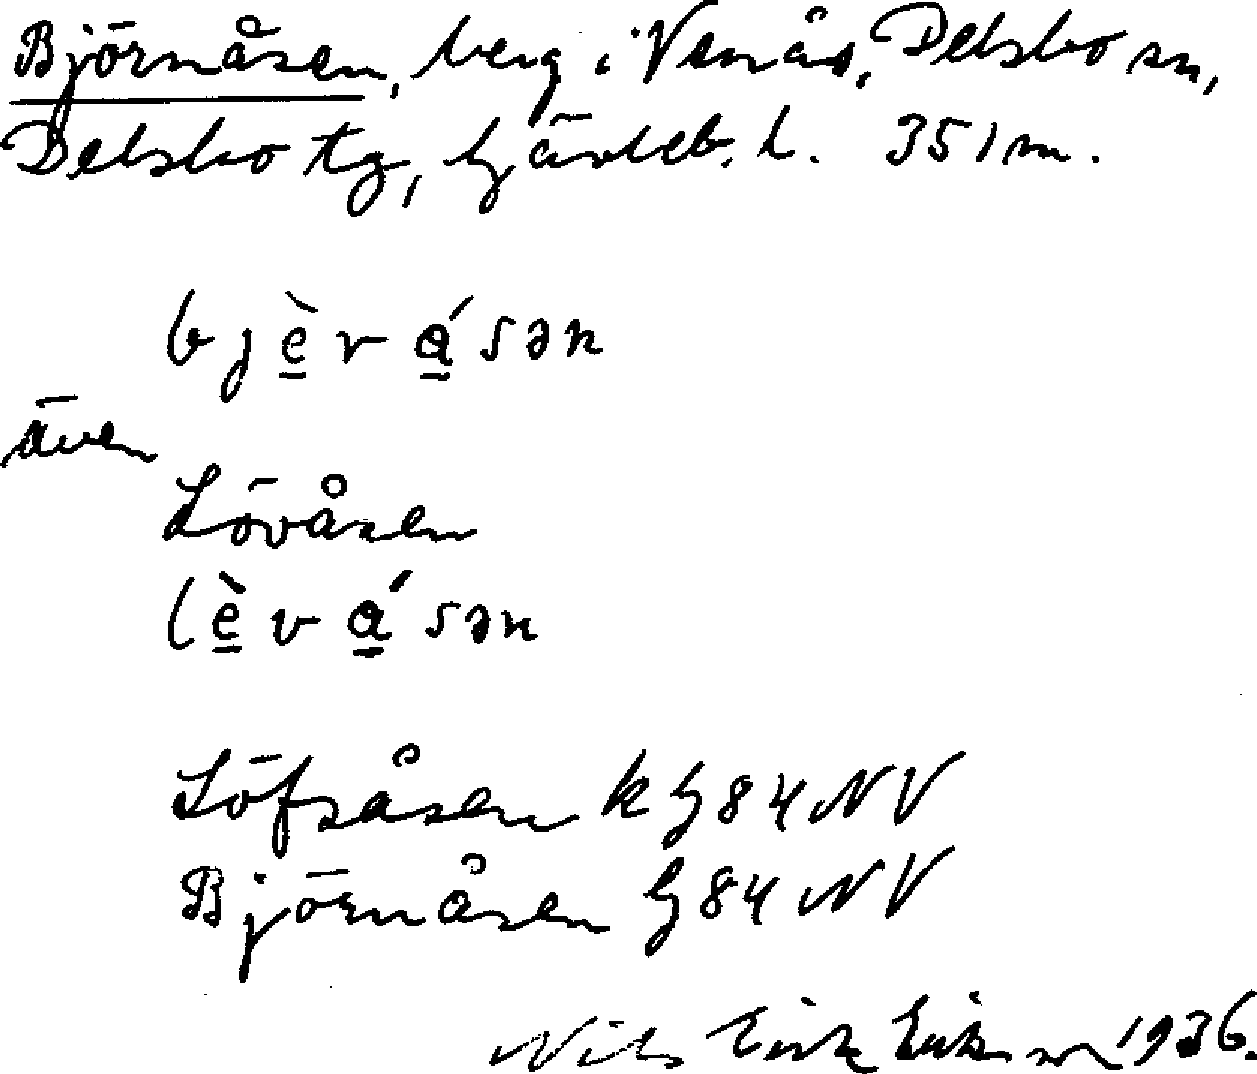 Björnåsen, berg i Venås, Delsbo sn,
Delsbo tg, Gävleb. l. 351 m.
bjè̱r á̱sən
även
Lövåsen
lè̱v á̱sən
Löfsåsen k G 84 NV
Björnåsen G 84 NV
Nils Erik Eriksson 1936.